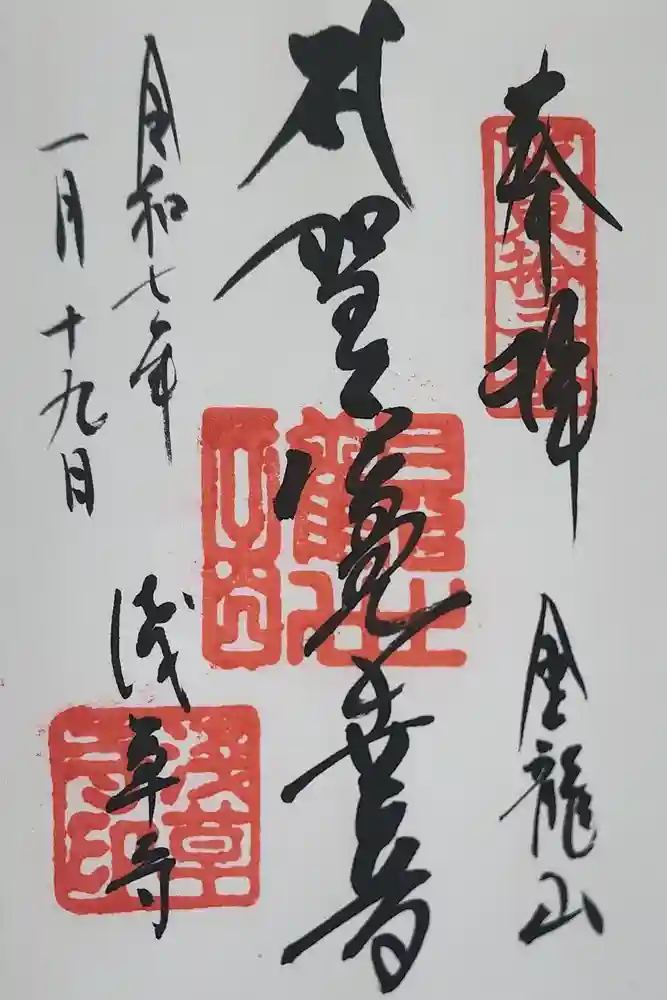 奉拝
坂東拾三番
金龍山
聖観世音
令和七年
一月十九日
浅草寺
浅草寺印